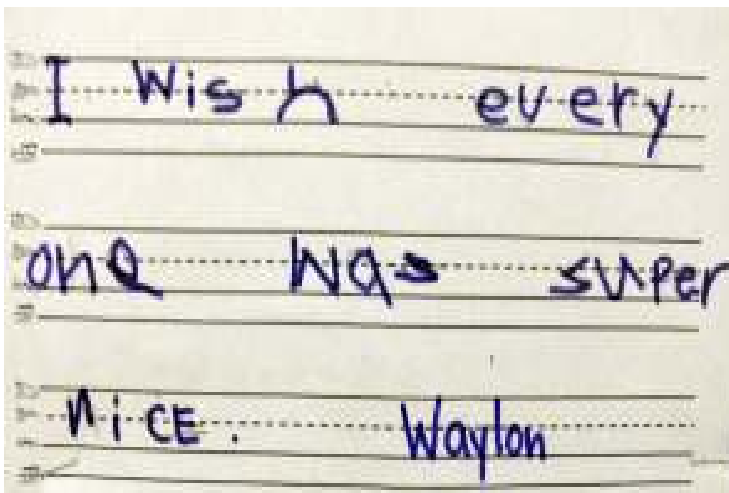 I wish every
one was super
nicE. Waylon